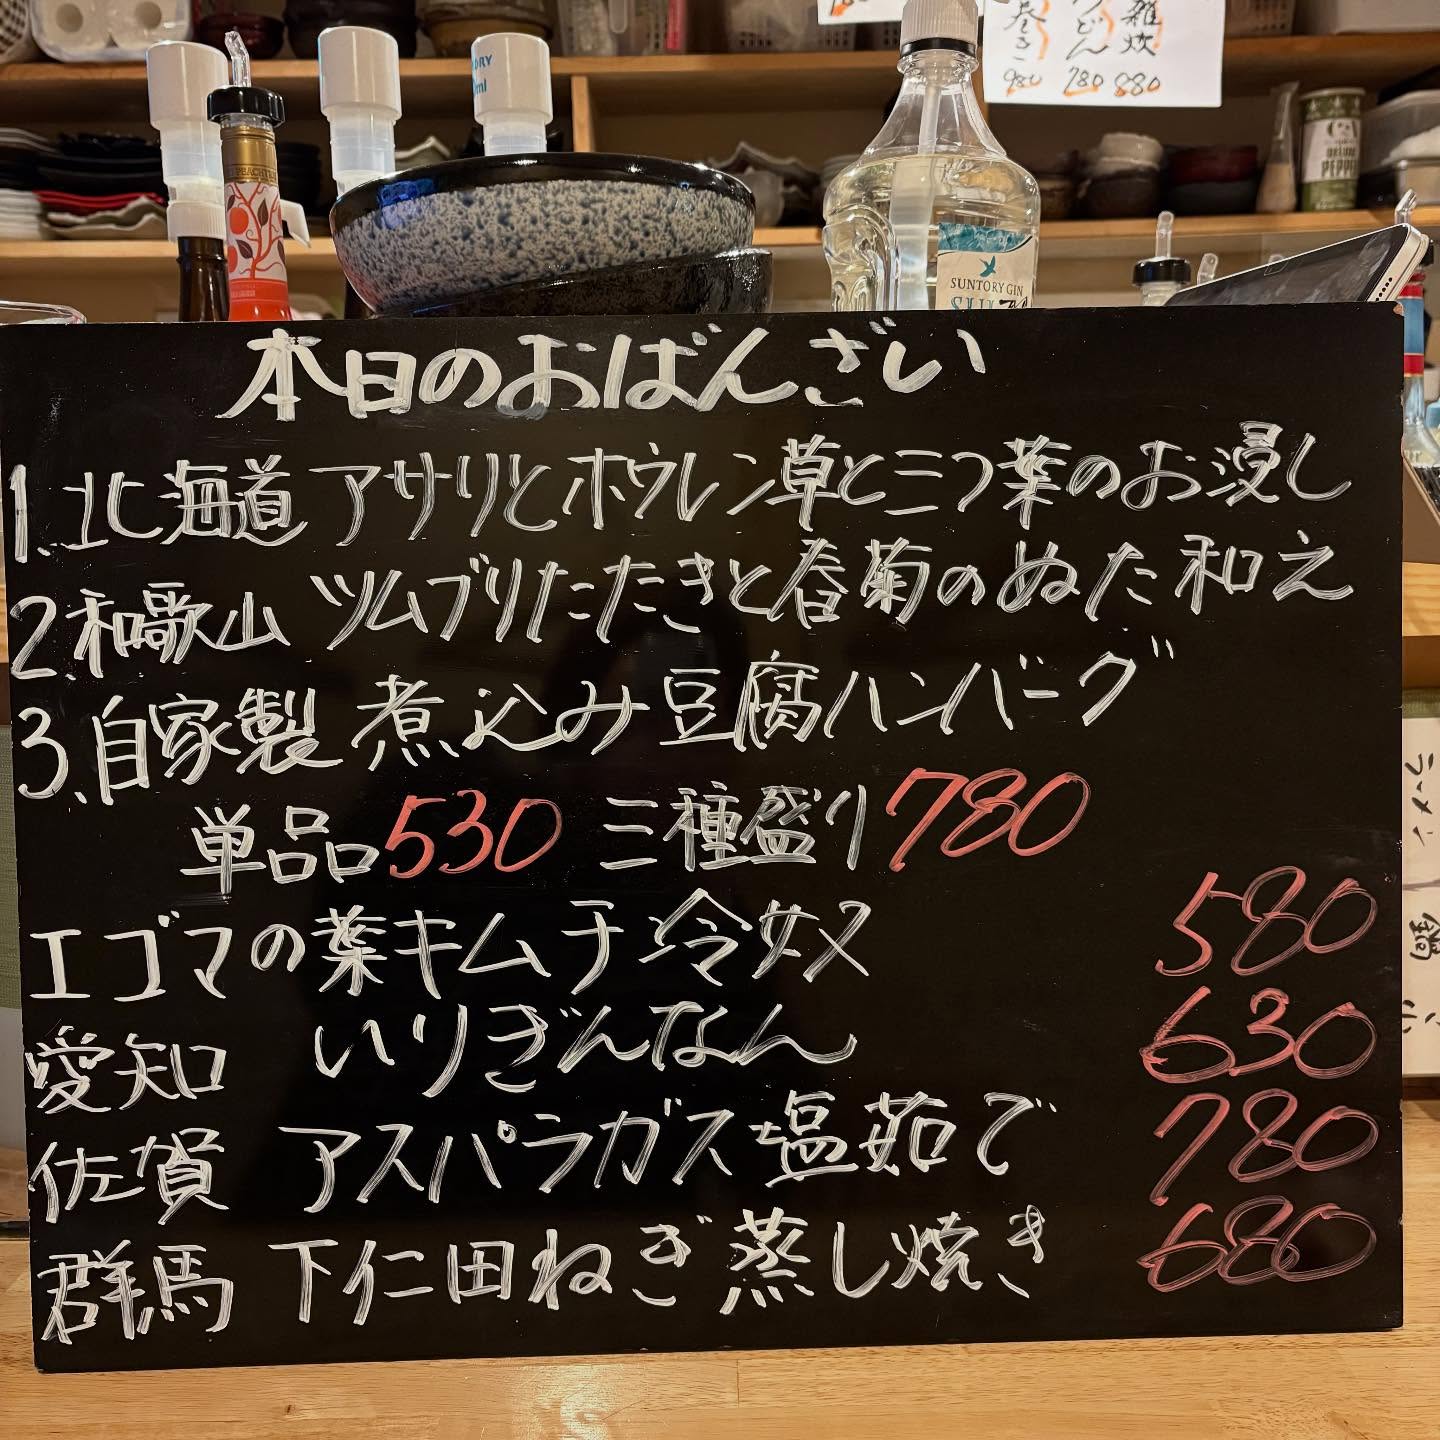 雑炊
うどん
巻き
980 780 880
DRY
ml
PEACH
SUNTORY GIN
PEPPER
本日のおばんざい
1、北海道 アサリとホウレン草と三つ葉のお浸し
2、和歌山 ツムブリたたきと春菊のぬた和え
3、自家製 煮込み豆腐ハンバーグ
単品530 三種盛り780
エゴマの葉キムチ冷奴 580
愛知 いりぎんなん 630
佐賀 アスパラガス塩茹で 780
群馬 下仁田ねぎ蒸し焼き 680